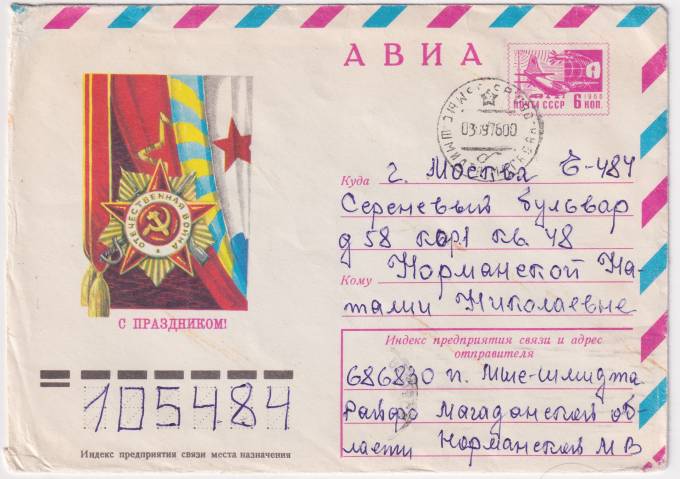 АВИА
ПОЧТА СССР 1966 6 КОП.
ОТЕЧЕСТВЕННАЯ ВОЙНА
С ПРАЗДНИКОМ!
Куда г. Москва Е-484
Сереневый бульвар
д 58 кор1 кв. 48
Кому Норманской На-
талии Николаевне
Индекс предприятия связи и адрес
отправителя
686830 п. Мыс-Шмидта
Райфо Магаданской об-
ласти Норманской М В
105484
Индекс предприятия связи места назначения